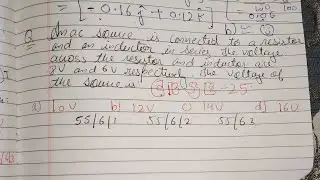 = [- 0.16 j + 0.12 k]
Q An ac source is connected to a resistor
and an inductor in series the voltage
across the resistor and inductor are
8V and 6V respectively. The voltage of
the source is
a) 10V b) 12V c) 14V d) 16V
55/6/1 55/6/2 55/6/3